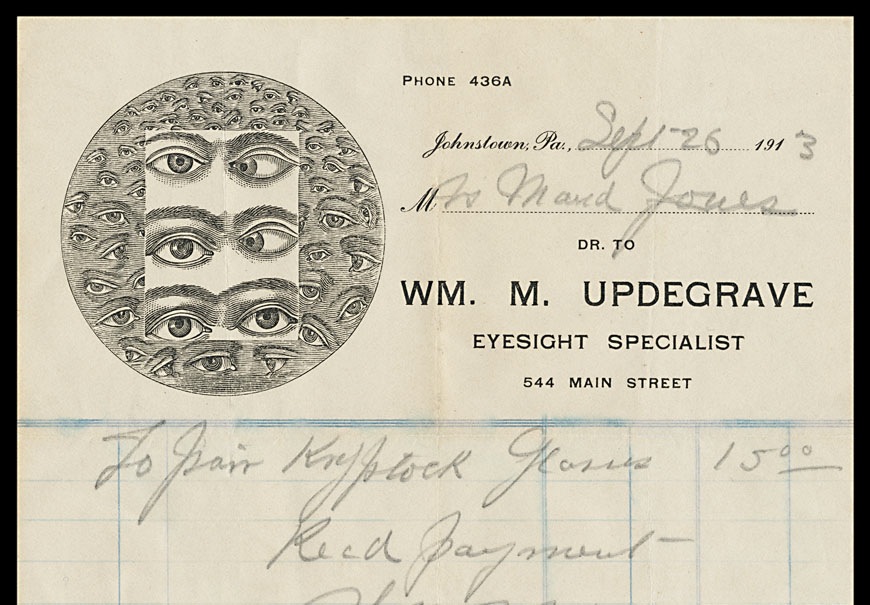 PHONE 436A
Johnstown, Pa., Sept 26 1913
Mrs Maud Jones
DR. TO
WM. M. UPDEGRAVE
EYESIGHT SPECIALIST
544 MAIN STREET
To pair Kryptock Glasses 15 00
Recd payment